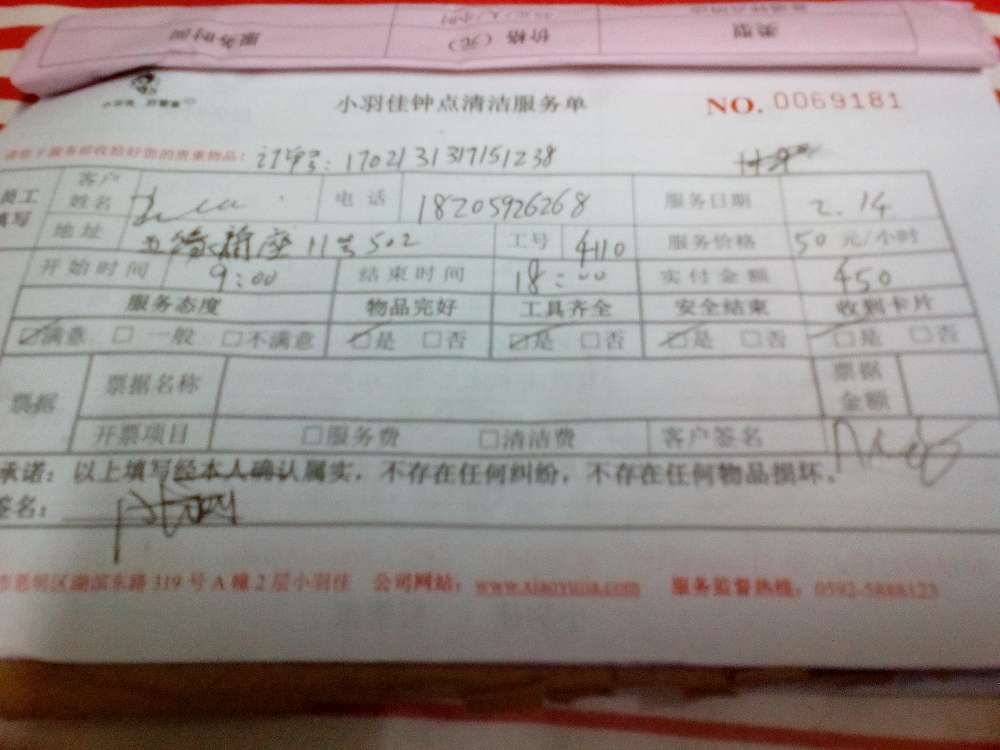 服务时间 价格（元） 类型
小羽佳钟点清洁服务单 NO. 0069181
订单号：1702131317151238
员工填写 客户姓名 电话 18205926268 服务日期 2.14
地址 11号502 工号 4110 服务价格 50 元/小时
开始时间 9:00 结束时间 18:00 实付金额 450
服务态度 物品完好 工具齐全 安全结束 收到卡片
☑满意 □一般 □不满意 ☑是 □否 ☑是 □否 ☑是 □否 ☑是 □否
票据 票据名称 票据金额
开票项目 □服务费 □清洁费 客户签名
承诺：以上填写经本人确认属实，不存在任何纠纷，不存在任何物品损坏。
签名：
市思明区湖滨东路 319 号 A 幢 2 层小羽佳 公司网站：www.xiaoyujia.com 服务监督热线：0592-5888123